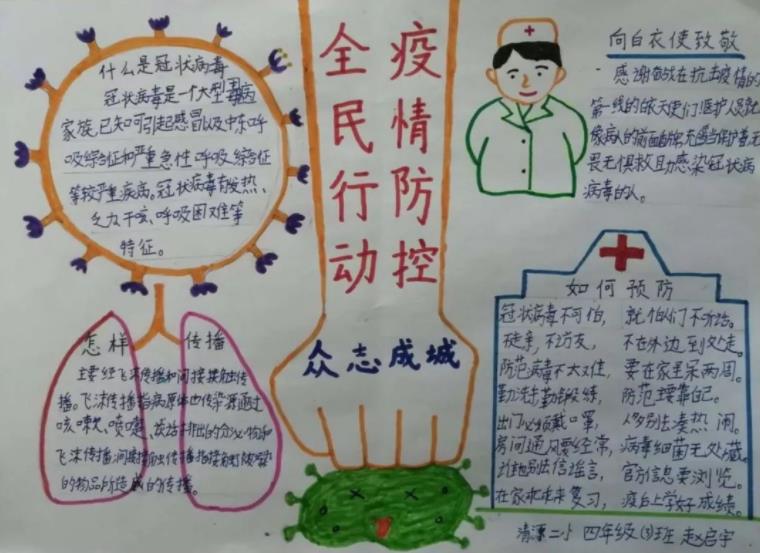 什么是冠状病毒
冠状病毒是一个大型毒病
家族,已知可引起感冒以及中东呼
吸综合征和严重急性呼吸综合征
等较严重疾病。冠状病毒有发热、
乏力干咳、呼吸困难等
特征。
疫情防控
全民行动
众志成城
向白衣使致敬
感谢奋战在抗击疫情的
第一线的
畏无惧救助感染冠状病
病毒的人。
怎样传播
主要经飞沫传播和间接接触传
播。飞沫传播指病原体由传染源通过
咳嗽、喷嚏、
飞沫传播,间接接触传播指接触被
的物品所造成的传播。
如何预防
冠状病毒不可怕,就怕你们不听话。
不走亲,不访友,不在外边到处走。
防范病毒不太难,要在家里呆两周。
勤洗手勤锻练,防范主要靠自己。
出门必须戴口罩,人多别去凑热闹。
房间通风要经常,病毒细菌无处藏。
别信谣言,官方信息要浏览。
在家
复习,
学好
成绩。
清源二小 四年级(3)班 赵启宇